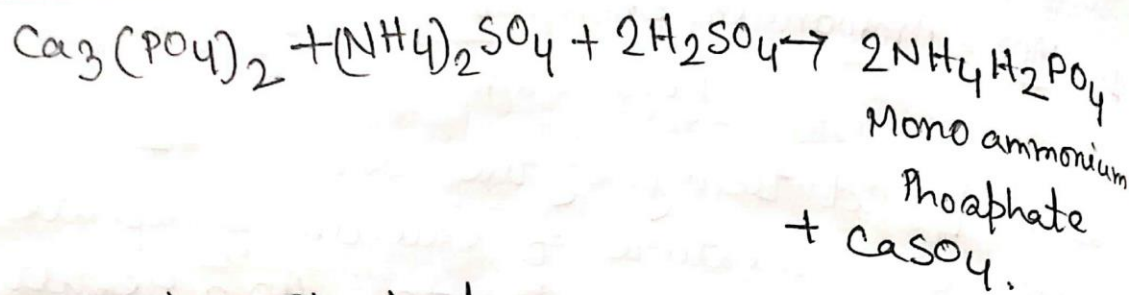 Ca3(PO4)2 +(NH4)2SO4 + 2H2SO4→ 2NH4H2PO4
Mono ammonium
Phoaphate
+ CaSO4.